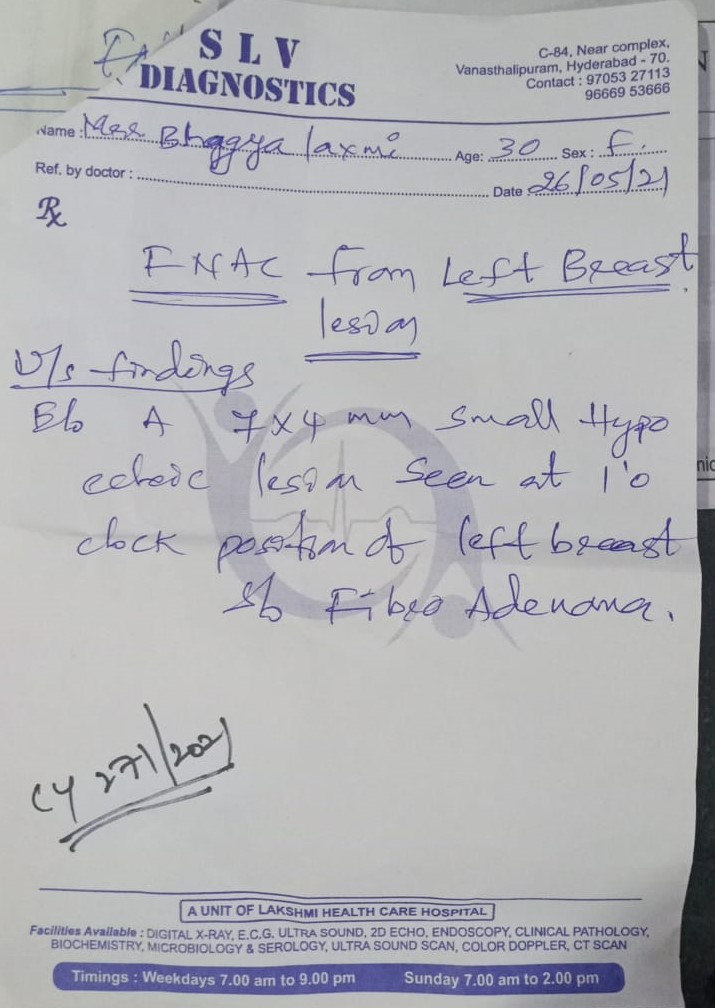 S L V
DIAGNOSTICS
C-84, Near complex,
Vanasthalipuram, Hyderabad - 70.
Contact : 97053 27113
96669 53666
Name : Mrs Bhagya laxmi Age: 30 Sex : F.
Ref. by doctor : Date 26/05/21
Rx
FNAC from Left Breast
lesion
U/s findings
E/o A 7x4 mm Small Hypo
echoic lesion Seen at 1'o
clock position of left breast
s/o Fibro Adenoma.
CY 271/2021
A UNIT OF LAKSHMI HEALTH CARE HOSPITAL
Facilities Available : DIGITAL X-RAY, E.C.G. ULTRA SOUND, 2D ECHO, ENDOSCOPY, CLINICAL PATHOLOGY,
BIOCHEMISTRY, MICROBIOLOGY & SEROLOGY, ULTRA SOUND SCAN, COLOR DOPPLER, CT SCAN
Timings : Weekdays 7.00 am to 9.00 pm Sunday 7.00 am to 2.00 pm